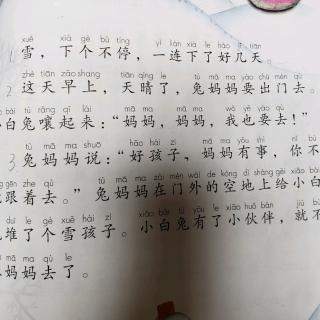 xuě xià gè bù tíng yì lián xià le hǎo jǐ tiān
1 雪，下个不停，一连下了好几天。
zhè tiān zǎo shang tiān qíng le tù mā ma yào chū mén qù
2 这天早上，天晴了，兔妈妈要出门去。
bái tù rǎng qǐ lái mā ma mā ma wǒ yě yào qù
小白兔嚷起来：“妈妈，妈妈，我也要去！”
tù mā ma shuō hǎo hái zi mā ma yǒu shì nǐ bù
3 兔妈妈说：“好孩子，妈妈有事，你不
gēn zhe qù tù mā ma zài mén wài de kòng dì shàng gěi xiǎo bái
跟着去。”兔妈妈在门外的空地上给小白
duī le gè xuě hái zi xiǎo bái tù yǒu le xiǎo huǒ bàn jiù bù
堆了个雪孩子。小白兔有了小伙伴，就不
mā ma qù le
妈妈去了。